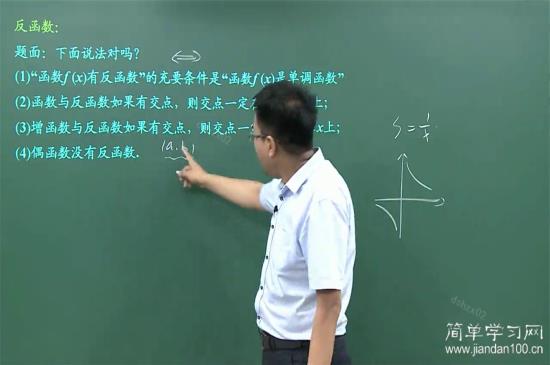 反函数：
题面：下面说法对吗？
(1)“函数f (x)有反函数”的充要条件是“函数f (x)是单调函数”
(2)函数与反函数如果有交点，则交点一定 上；
(3)增函数与反函数如果有交点，则交点一 x上；
(4)偶函数没有反函数.
(a,
dshzx02
简单学习网
www.jiandan100.cn